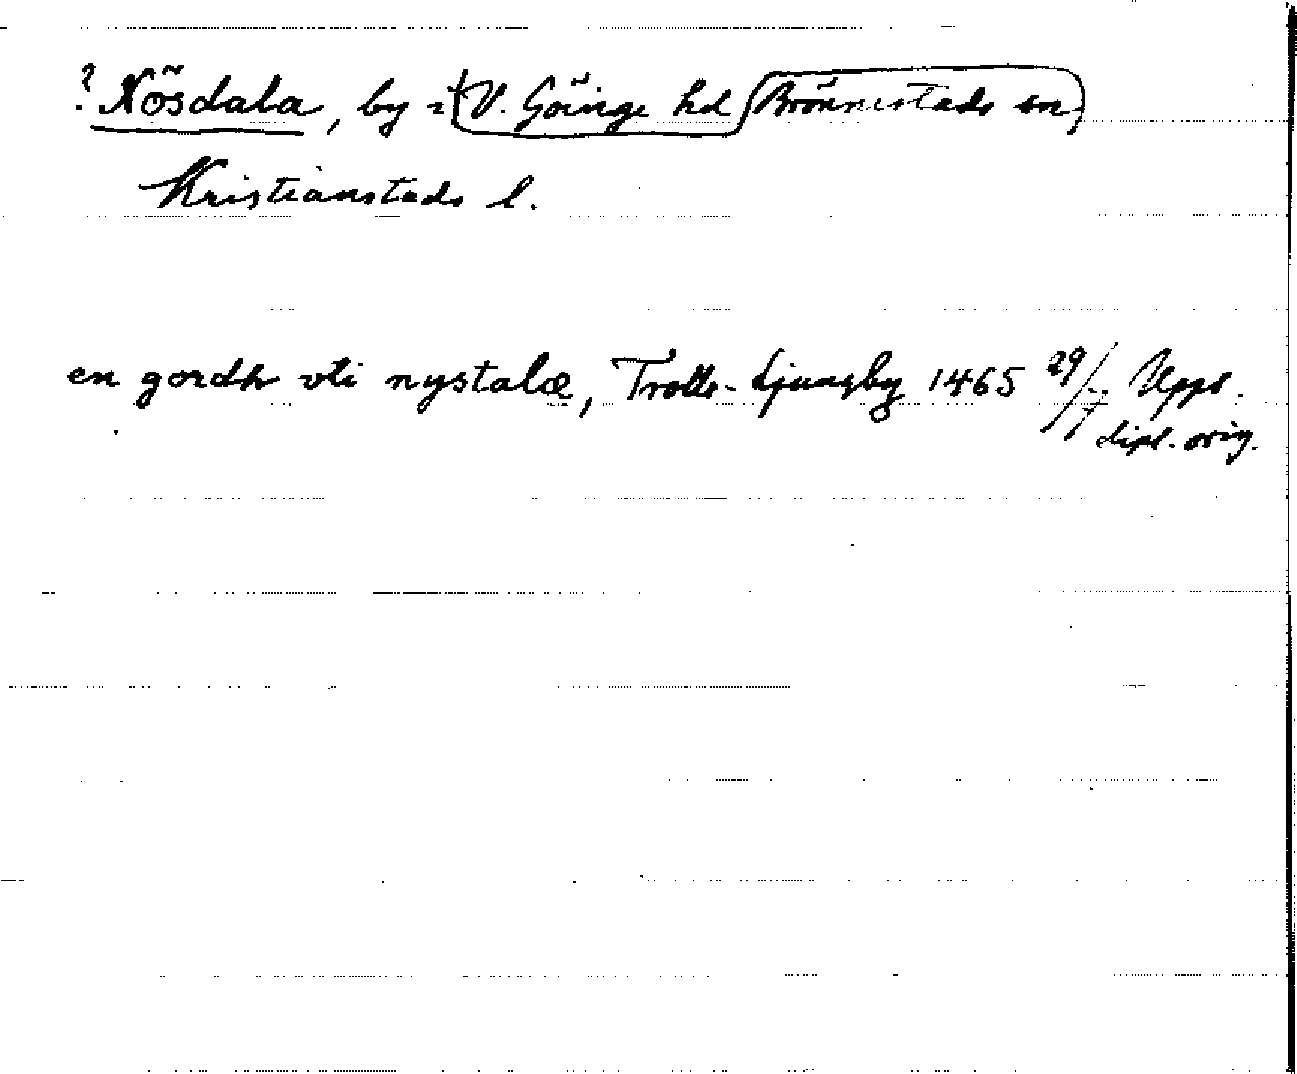 ? Nösdala, by i V. Göinge hd Brönnestads sn
Kristianstads l.
en gordh vti nystalæ, Trolle-Ljungby 1465 29/7 Uppl.
dipl. orig.